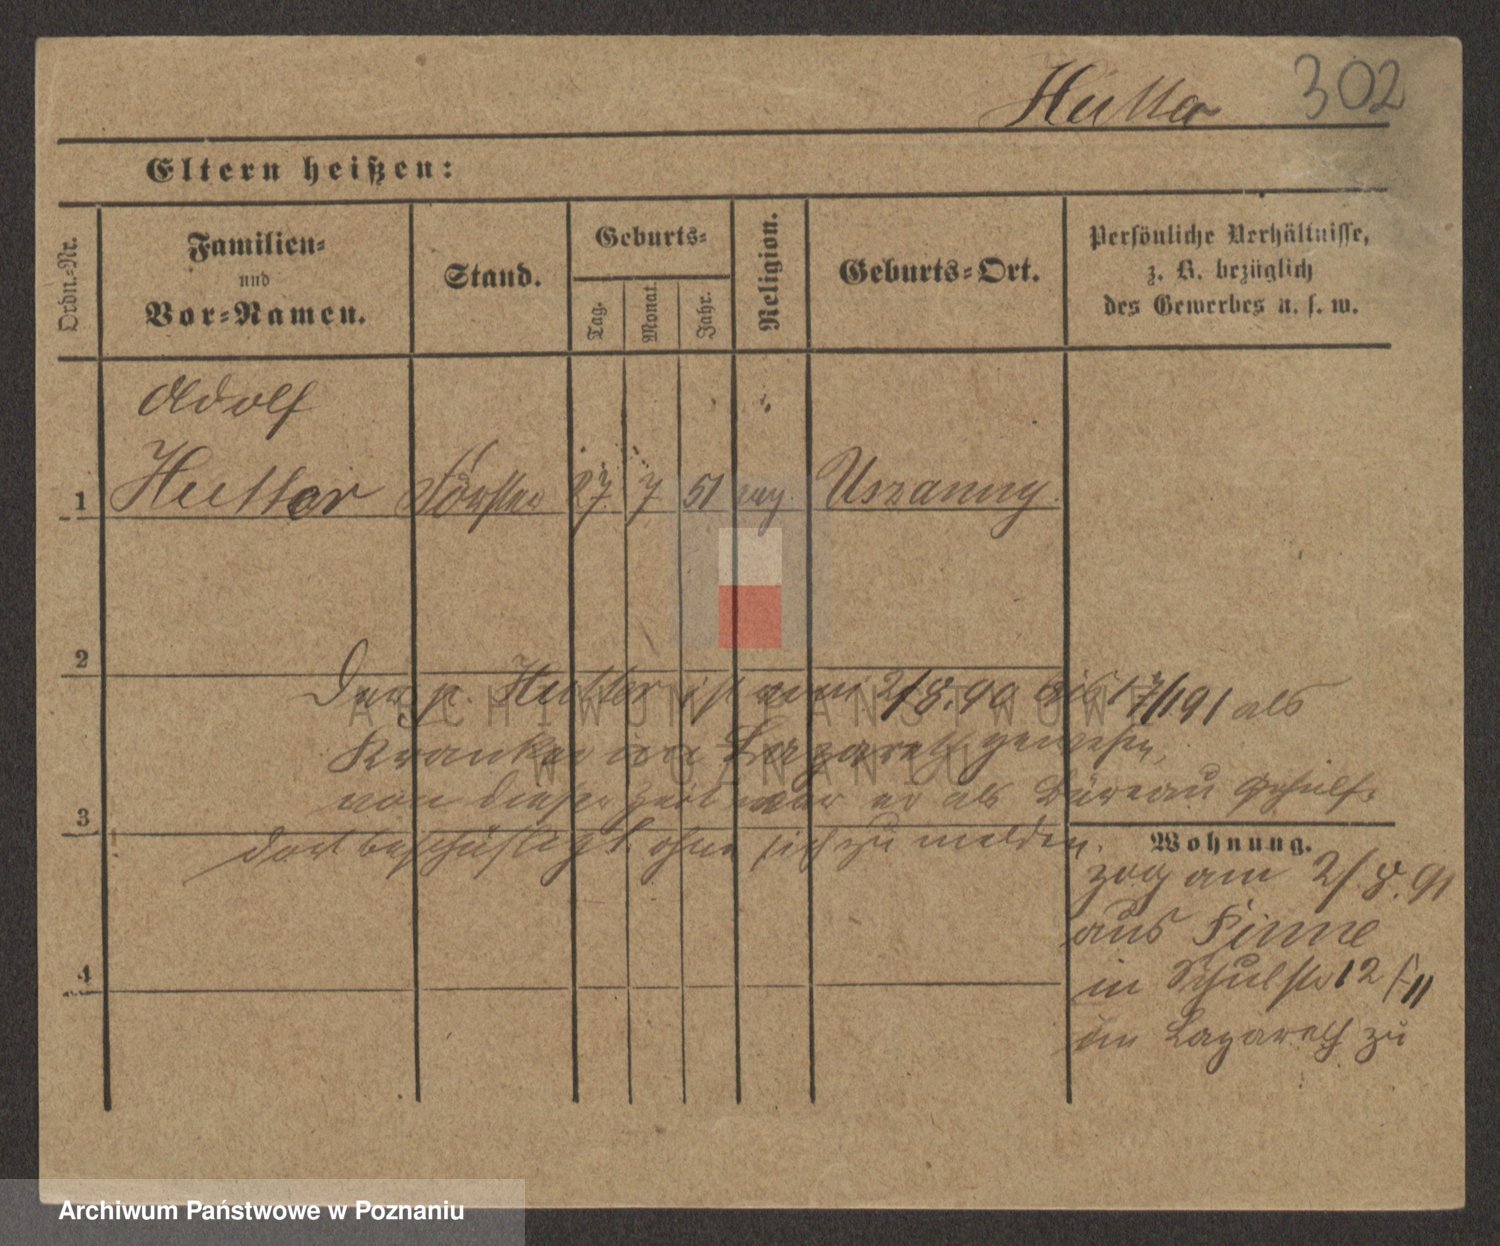 Hutter 302
Eltern heißen:
Ordn.=Nr.
Familien=
und
Vor=Namen.
Stand.
Geburts=
Tag.
Monat.
Jahr.
Religion.
Geburts=Ort.
Persönliche Verhältnisse,
z. B. bezüglich
des Gewerbes u. s. w.
Adolf
1 Hutter Förster 27. 7 51 evg.
2
Der p. Hutter ist vom 2/8. 90 bis 91 als
Kranker im Lazareth gewesen,
von dieser Zeit war er als Büreau Gehülfe
3
dort beschäftigt ohne sich zu melden.
Wohnung.
zog am 2/8. 91
aus Pinne
4
in Schulstr 12
im Lazareth zu
ARCHIWUM PAŃSTWOWE
W POZNANIU
Archiwum Państwowe w Poznaniu